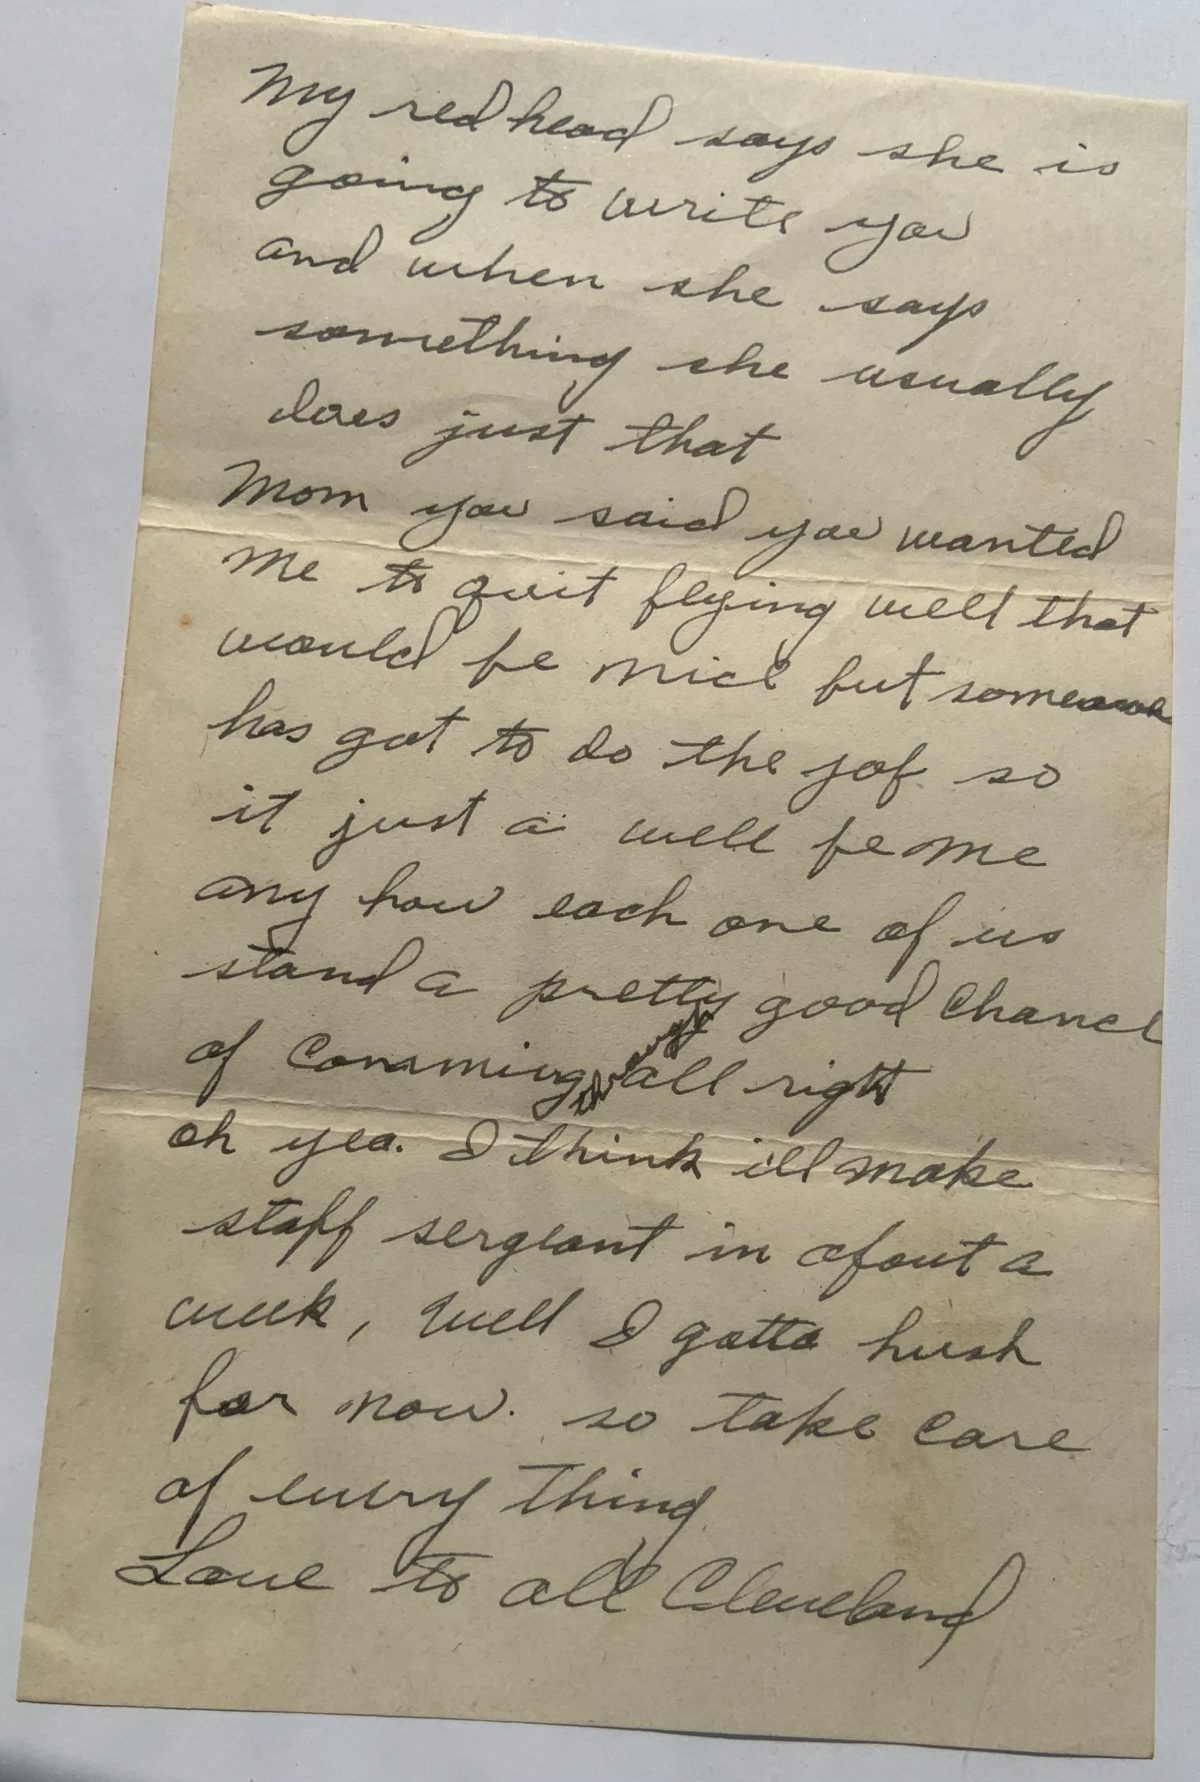 My red head says she is
going to write you
and when she says
something she usually
does just that
Mom you said you wanted
me to quit flying well that
would be nice but someone
has got to do the job so
it just a well be me
any how each one of us
stand a pretty good chance
of comming all right
oh yea. I think ill make
staff sergeant in about a
week, well I gotta hush
for now. so take care
of every thing
Love to all Cleveland